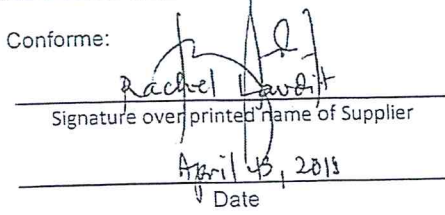 Conforme:
Rachel
Signature over printed name of Supplier
April 2018
Date